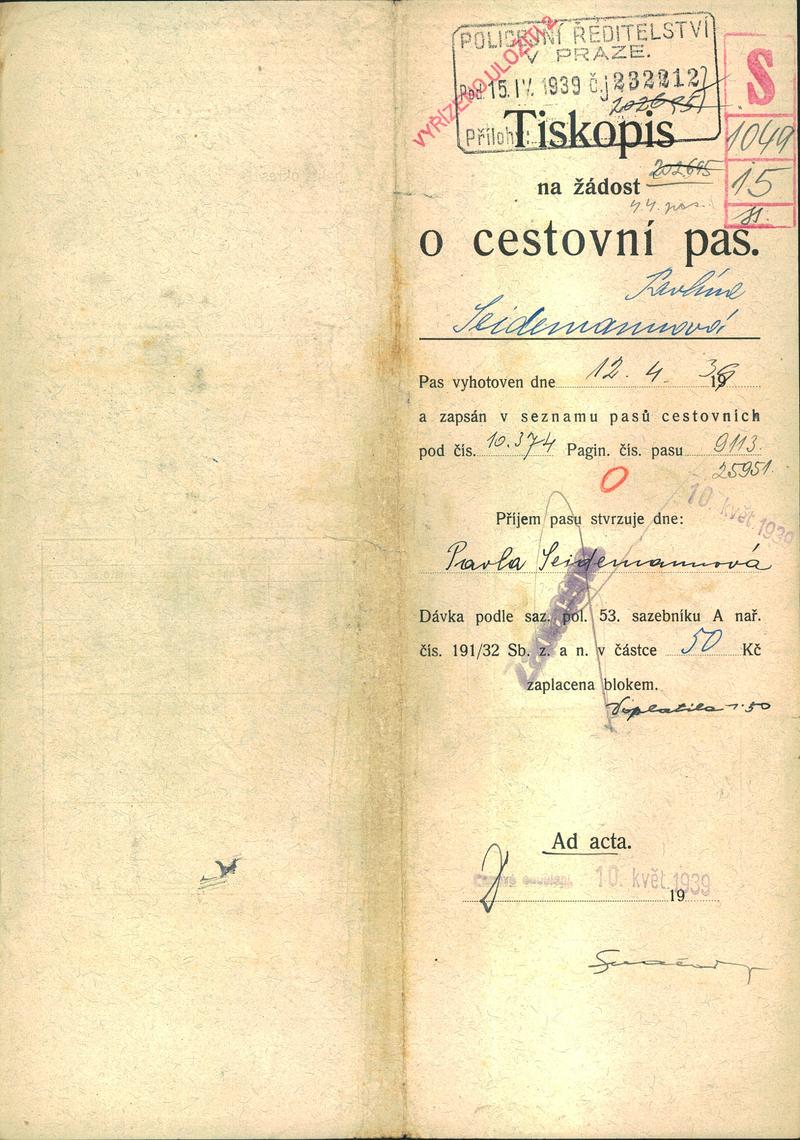 POLICEJNÍ ŘEDITELSTVÍ
V PRAZE.
Pod. 15. IV. 1939 č.j. 232212
202695
Příloh:
VYŘÍZENO ULOŽITI 2
S
1049
15
Tiskopis
na žádost
202695
o cestovní pas.
Pavlína
Seidemannová
Pas vyhotoven dne 12. 4. 1939
a zapsán v seznamu pasů cestovních
pod čís. 10.374 Pagin. čís. pasu 9113.
25951.
10. květ. 1939
Příjem pasu stvrzuje dne:
Pavla Seidemannová
Dávka podle saz. pol. 53. sazebníku A nař.
čís. 191/32 Sb. z. a n. v částce 50 Kč
zaplacena blokem.
Doplatila 1·50
Ad acta.
10. květ. 1939
19